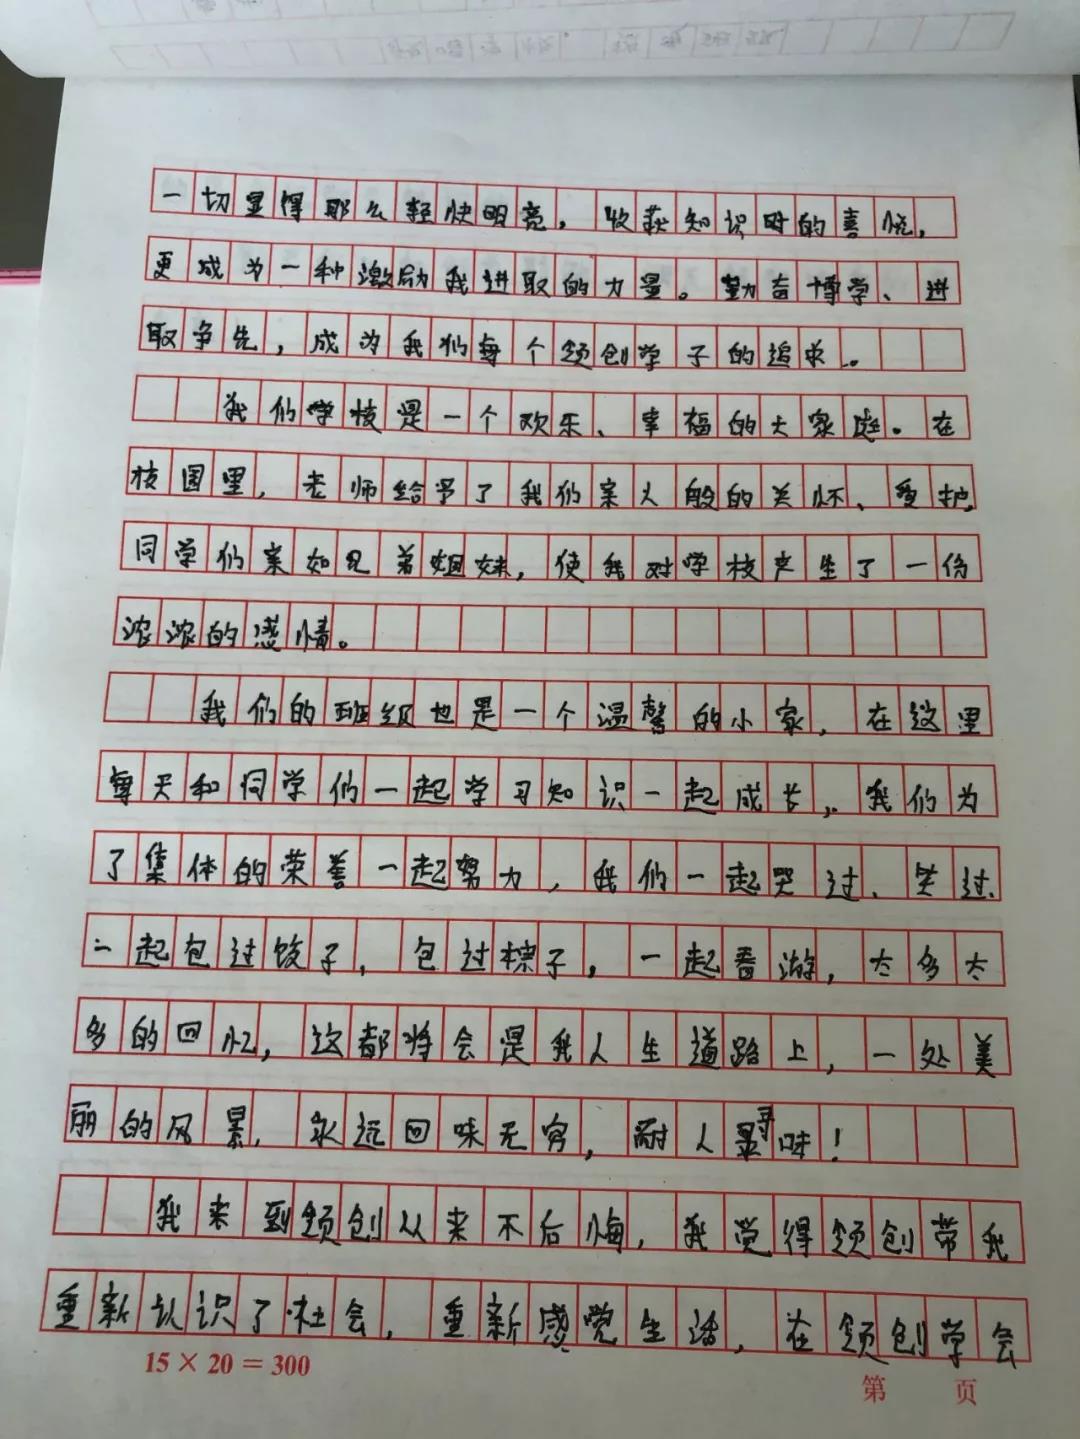 一切显得那么轻快明亮，收获知识时的喜悦，
更成为一种激励我进取的力量。勤奋博学、进
取争先，成为我们每个领创学子的追求。
我们学校是一个欢乐、幸福的大家庭。在
校园里，老师给予了我们亲人般的关怀、爱护，
同学们亲如兄弟姐妹，使我对学校产生了一份
浓浓的感情。
我们的班级也是一个温馨的小家，在这里
每天和同学们一起学习知识一起成长，我们为
了集体的荣誉一起努力，我们一起哭过、笑过、
一起包过饺子，包过粽子，一起春游，太多太
多的回忆，这都将会是我人生道路上，一处美
丽的风景，永远回味无穷，耐人寻味！
我来到领创从来不后悔，我觉得领创带我
重新认识了社会，重新感觉生活，在领创学会
15 × 20 = 300
第 页